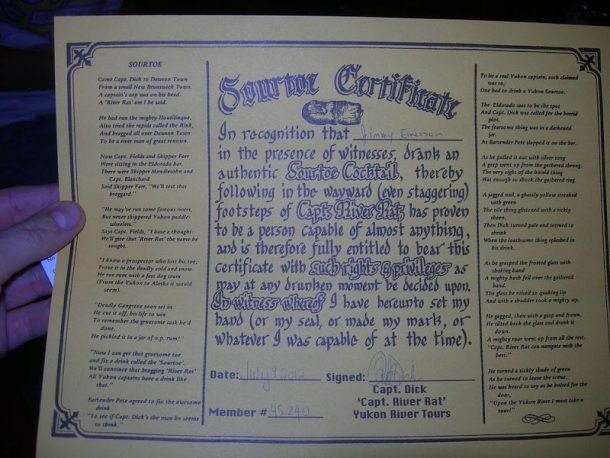 SOURTOE
Came Capt. Dick to Dawson Town
From a small New Brunswick Town.
A captain's cap was on his head.
A "River Rat" am I he said.
He had run the mighty Hootalinqua,
Also tried the rapids called the Rink,
And bragged all over Dawson Town
To be a river man of great renown.
Now Capt. Fields and Skipper Farr
Were sitting in the Eldorado bar.
There were Skipper Mendlesohn and
Capt. Blanchard.
Said Skipper Farr, "We'll test that
braggard."
"He may've run some famous rivers,
But never shipped Yukon paddle-
wheelers."
Says Capt. Fields, "I have a thought:
We'll give that 'River Rat' the name he
sought.
"I knew a prospector who lost his toe;
Froze it in the deadly cold and snow.
He ran rum with a fast dog team
(From the Yukon to Alaska it would
seem).
"Deadly Gangrene soon set in.
He cut it off, his life to win
To remember the gruesome task he'd
done,
He pickled it in a jar of o.p. rum!"
"Now I can get that gruesome toe
and fix a drink called the 'Sourtoe'.
We'll convince that bragging 'River Rat'
All Yukon captains have a drink like
that."
Bartender Pete agreed to fix the awesome
drink
"To see if Capt. Dick's the man he seems
to think."
Sourtoe Certificate
In recognition that Jimmy Emerson
in the presence of witnesses, drank an
authentic Sourtoe Cocktail, thereby
following in the wayward (even staggering)
footsteps of Capt. River Rat has proven
to be a person capable of almost anything,
and is therefore fully entitled to bear this
certificate with such rights & privileges as
may at any drunken moment be decided upon.
In witness whereof I have hereunto set my
hand (or my seal, or made my mark, or
whatever I was capable of at the time).
Date: July 9 2012 Signed:
Capt. Dick
'Capt. River Rat'
Member # 45240 Yukon River Tours
To be a real Yukon captain, each claimed
was so,
One had to drink a Yukon Sourtoe.
The Eldorado was to be the spot
And Capt. Dick was called for the horrid
plot.
The fearsome thing was in a darkened
jar.
As Bartender Pete slapped it on the bar.
As he pulled it out with silver tong
A gasp went up from the gathered throng.
The very sight of the horrid thing
Was enough to shock the gathered ring.
A jagged nail, a ghastly yellow streaked
with green
The vile thing glistened with a sickly
sheen,
Then Dick turned pale and seemed to
shrink
When the loathsome thing splashed in
his drink.
As he grasped the frosted glass with
shaking hand
A mighty hush fell over the gathered
band.
The glass he raised to quaking lip
And with a shudder took a mighty sip.
He gagged, then with a gasp and frown,
He tilted back the glass and drank it
down.
A mighty roar went up from all the rest.
"Capt. River Rat can navigate with the
best."
He turned a sickly shade of green
As he turned to leave the scene.
He was heard to say as he bolted for the
door,
"Upon the Yukon River I must take a
tour!"